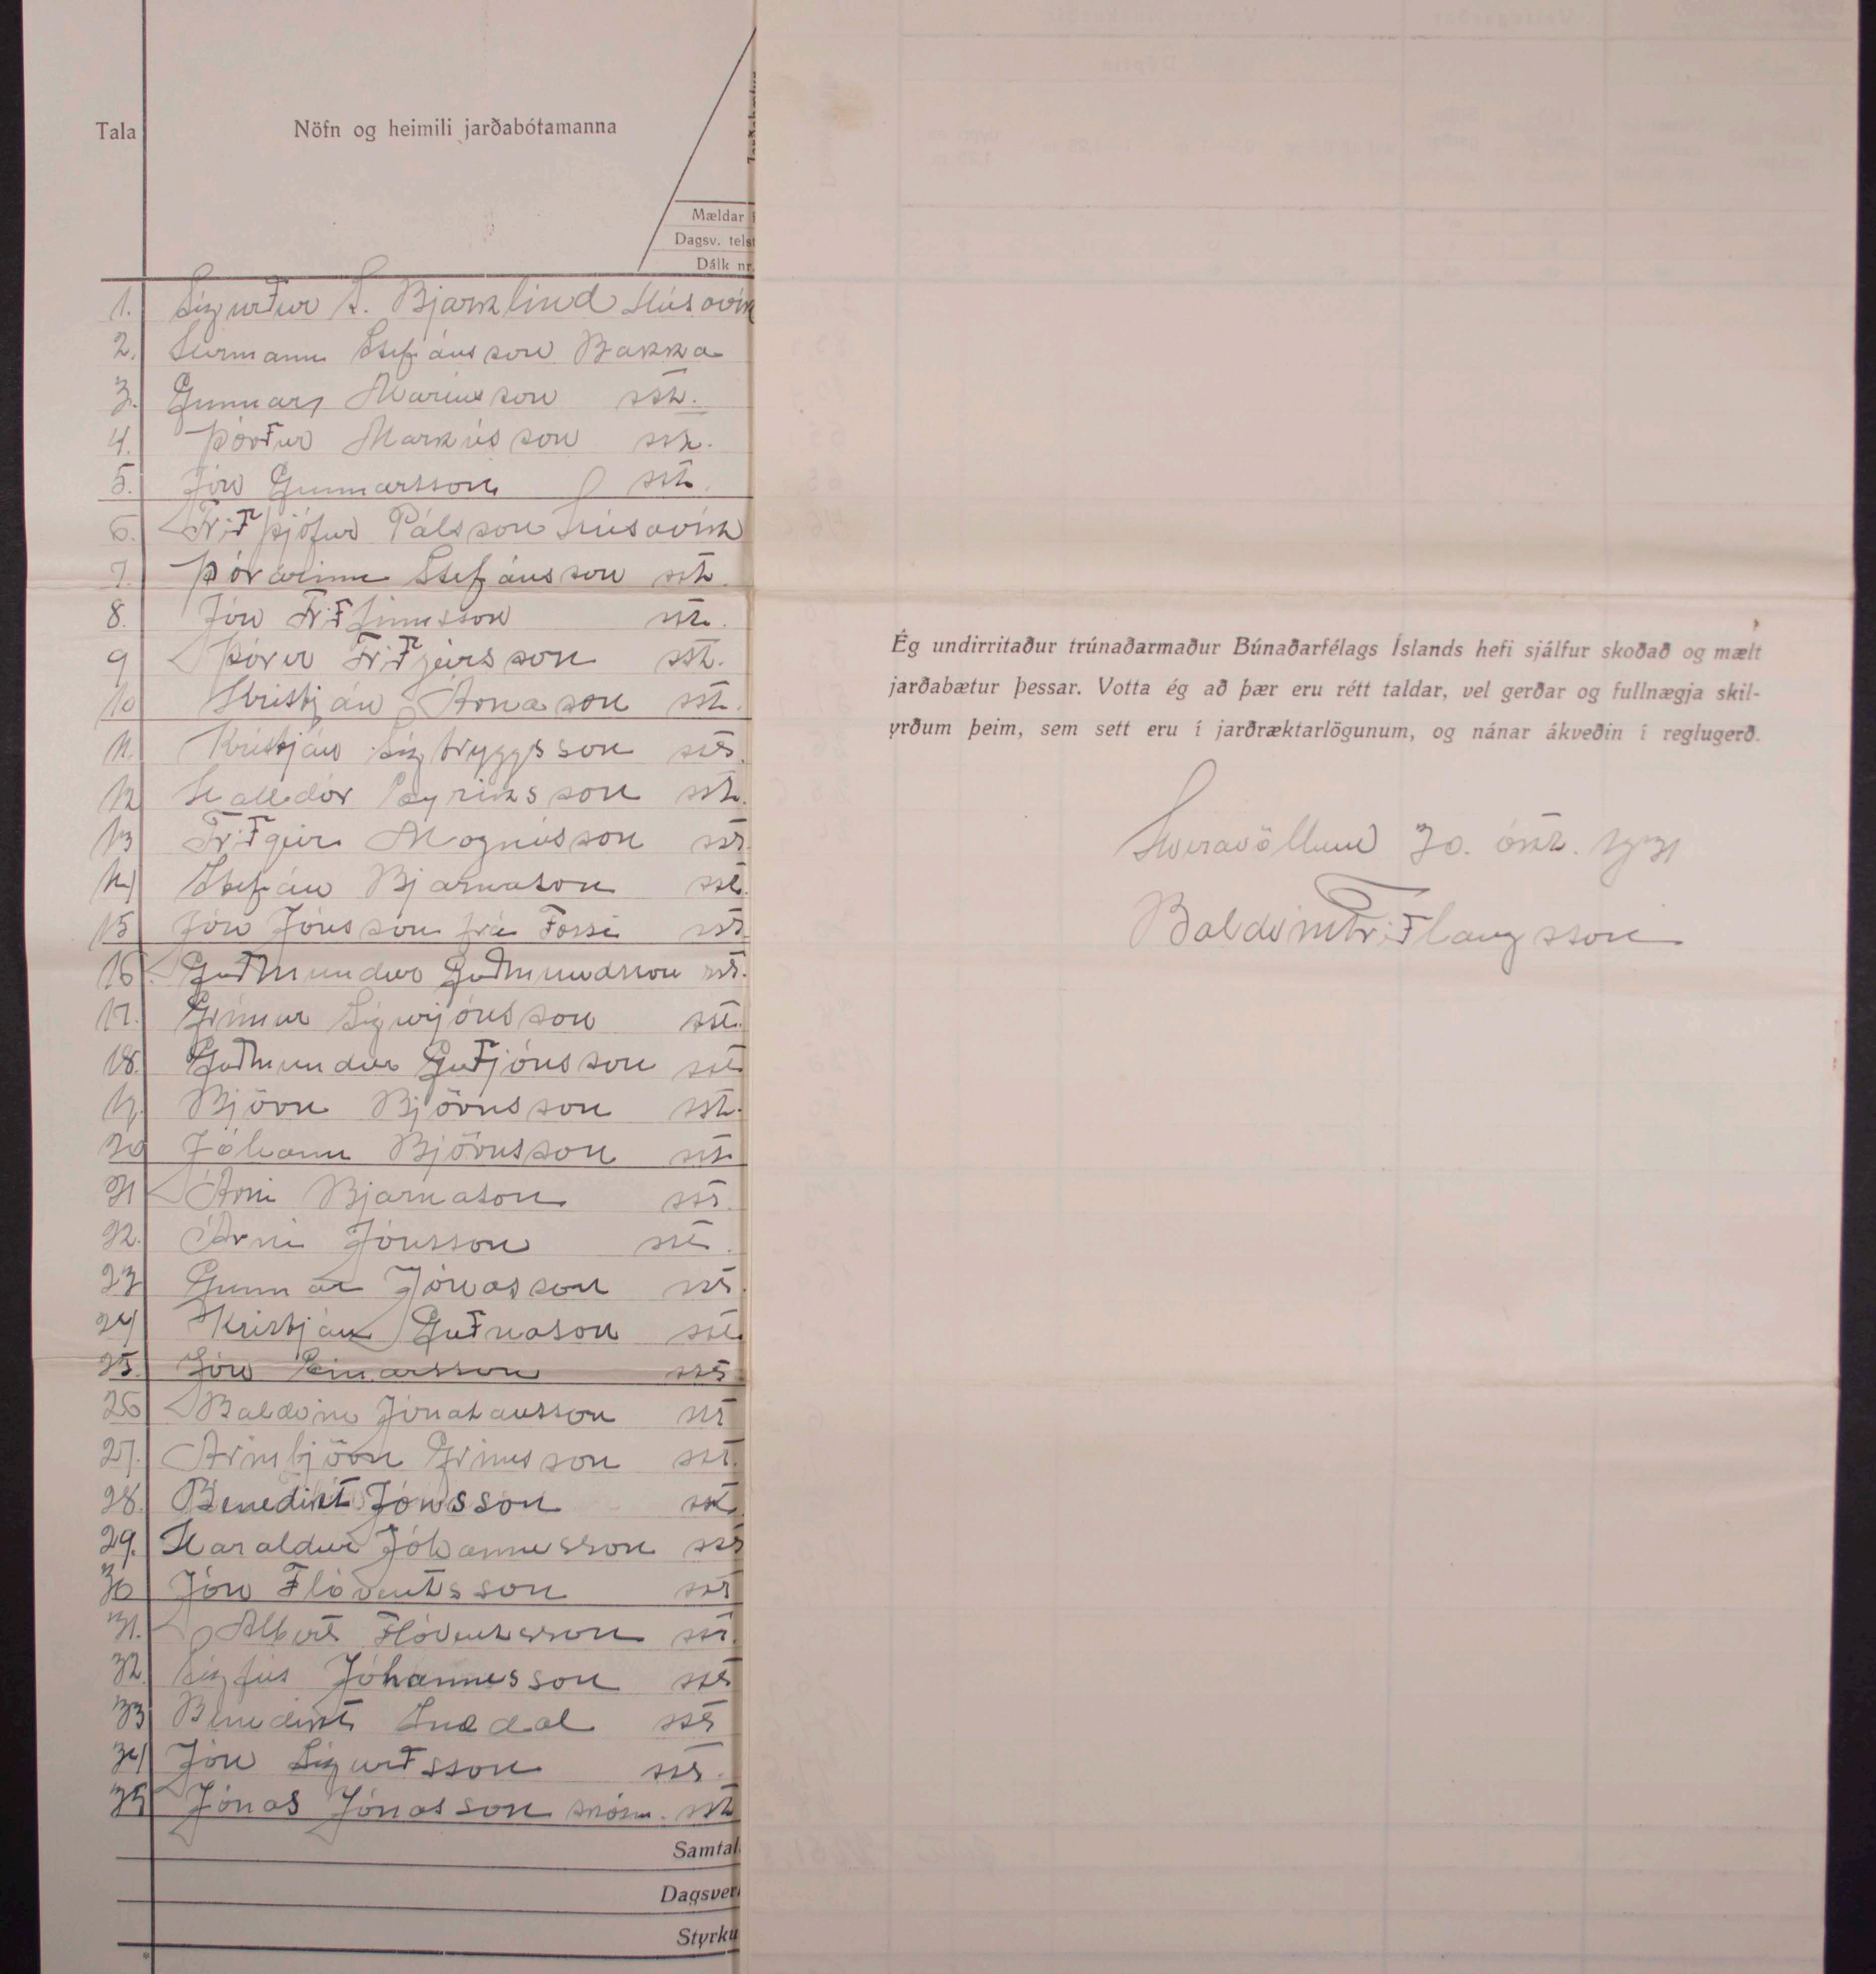 Tala
Nöfn og heimili jarðabótamanna
Mældar
Dagsv. telst
Dálk nr.
1. Sigurður S. Bjarklind Húsavík
2. Hermann Stefánsson Bakka
3. Gunnar Maríusson sst.
4. Þórður Markússon sst.
5. Jón Gunnarsson sst.
6. Friðþjófur Pálsson Húsavík
7. Þórarinn Stefánsson sst.
8. Jón Friðfinnsson sst.
9 Þórir Friðgeirsson sst.
10 Kristján Árnason sst.
11. Kristján Sigtryggsson sst.
12 Halldór Eyríksson sst.
13 Friðgeir Magnússon sst.
14 Stefán Bjarnason sst.
15 Jón Jónsson frá Fossi sst.
16 Guðmundur Guðmundsson sst.
17. Grímur Sigurjónsson sst.
18. Guðmundur Guðjónsson sst
19. Björn Björnsson sst.
20 Jóhann Björnsson sst.
21 Árni Bjarnason sst.
22. Árni Jónsson sst.
23 Gunnar Jónasson sst.
24 Kristján Guðnason sst
25. Jón Einarsson sst
26 Baldvin Jónatansson sst
27. Arinbjörn Grímsson sst.
28. Benedikt Jónsson sst
29. Haraldur Jóhannesson sst
30 Jón Flóventsson sst
31. Albert Flóventsson sst.
32. Sigfús Jóhannesson sst
33 Benedikt Snædal sst
34 Jón Sigurðsson sst.
35 Jónas Jónasson sst
Samtal
Dagsver
Styrku
Ég undirritaður trúnaðarmaður Búnaðarfélags Íslands hefi sjálfur skoðað og mælt
jarðabætur þessar. Votta ég að þær eru rétt taldar, vel gerðar og fullnægja skil-
yrðum þeim, sem sett eru í jarðræktarlögunum, og nánar ákveðin í reglugerð.
Hveravöllum 30. okt. 1931
Baldvin Friðlaugsson